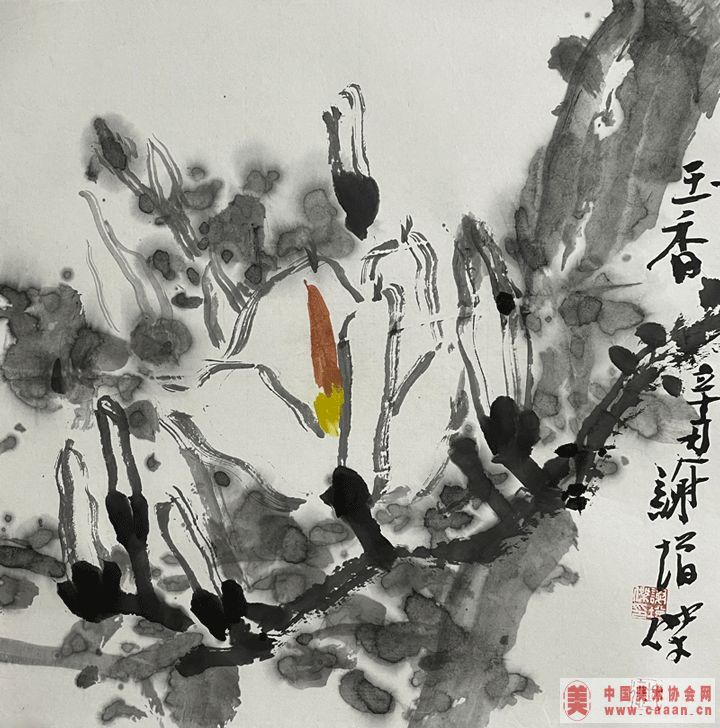 玉香
辛丑谢增杰
美 中国美术协会网
www.caaan.cn